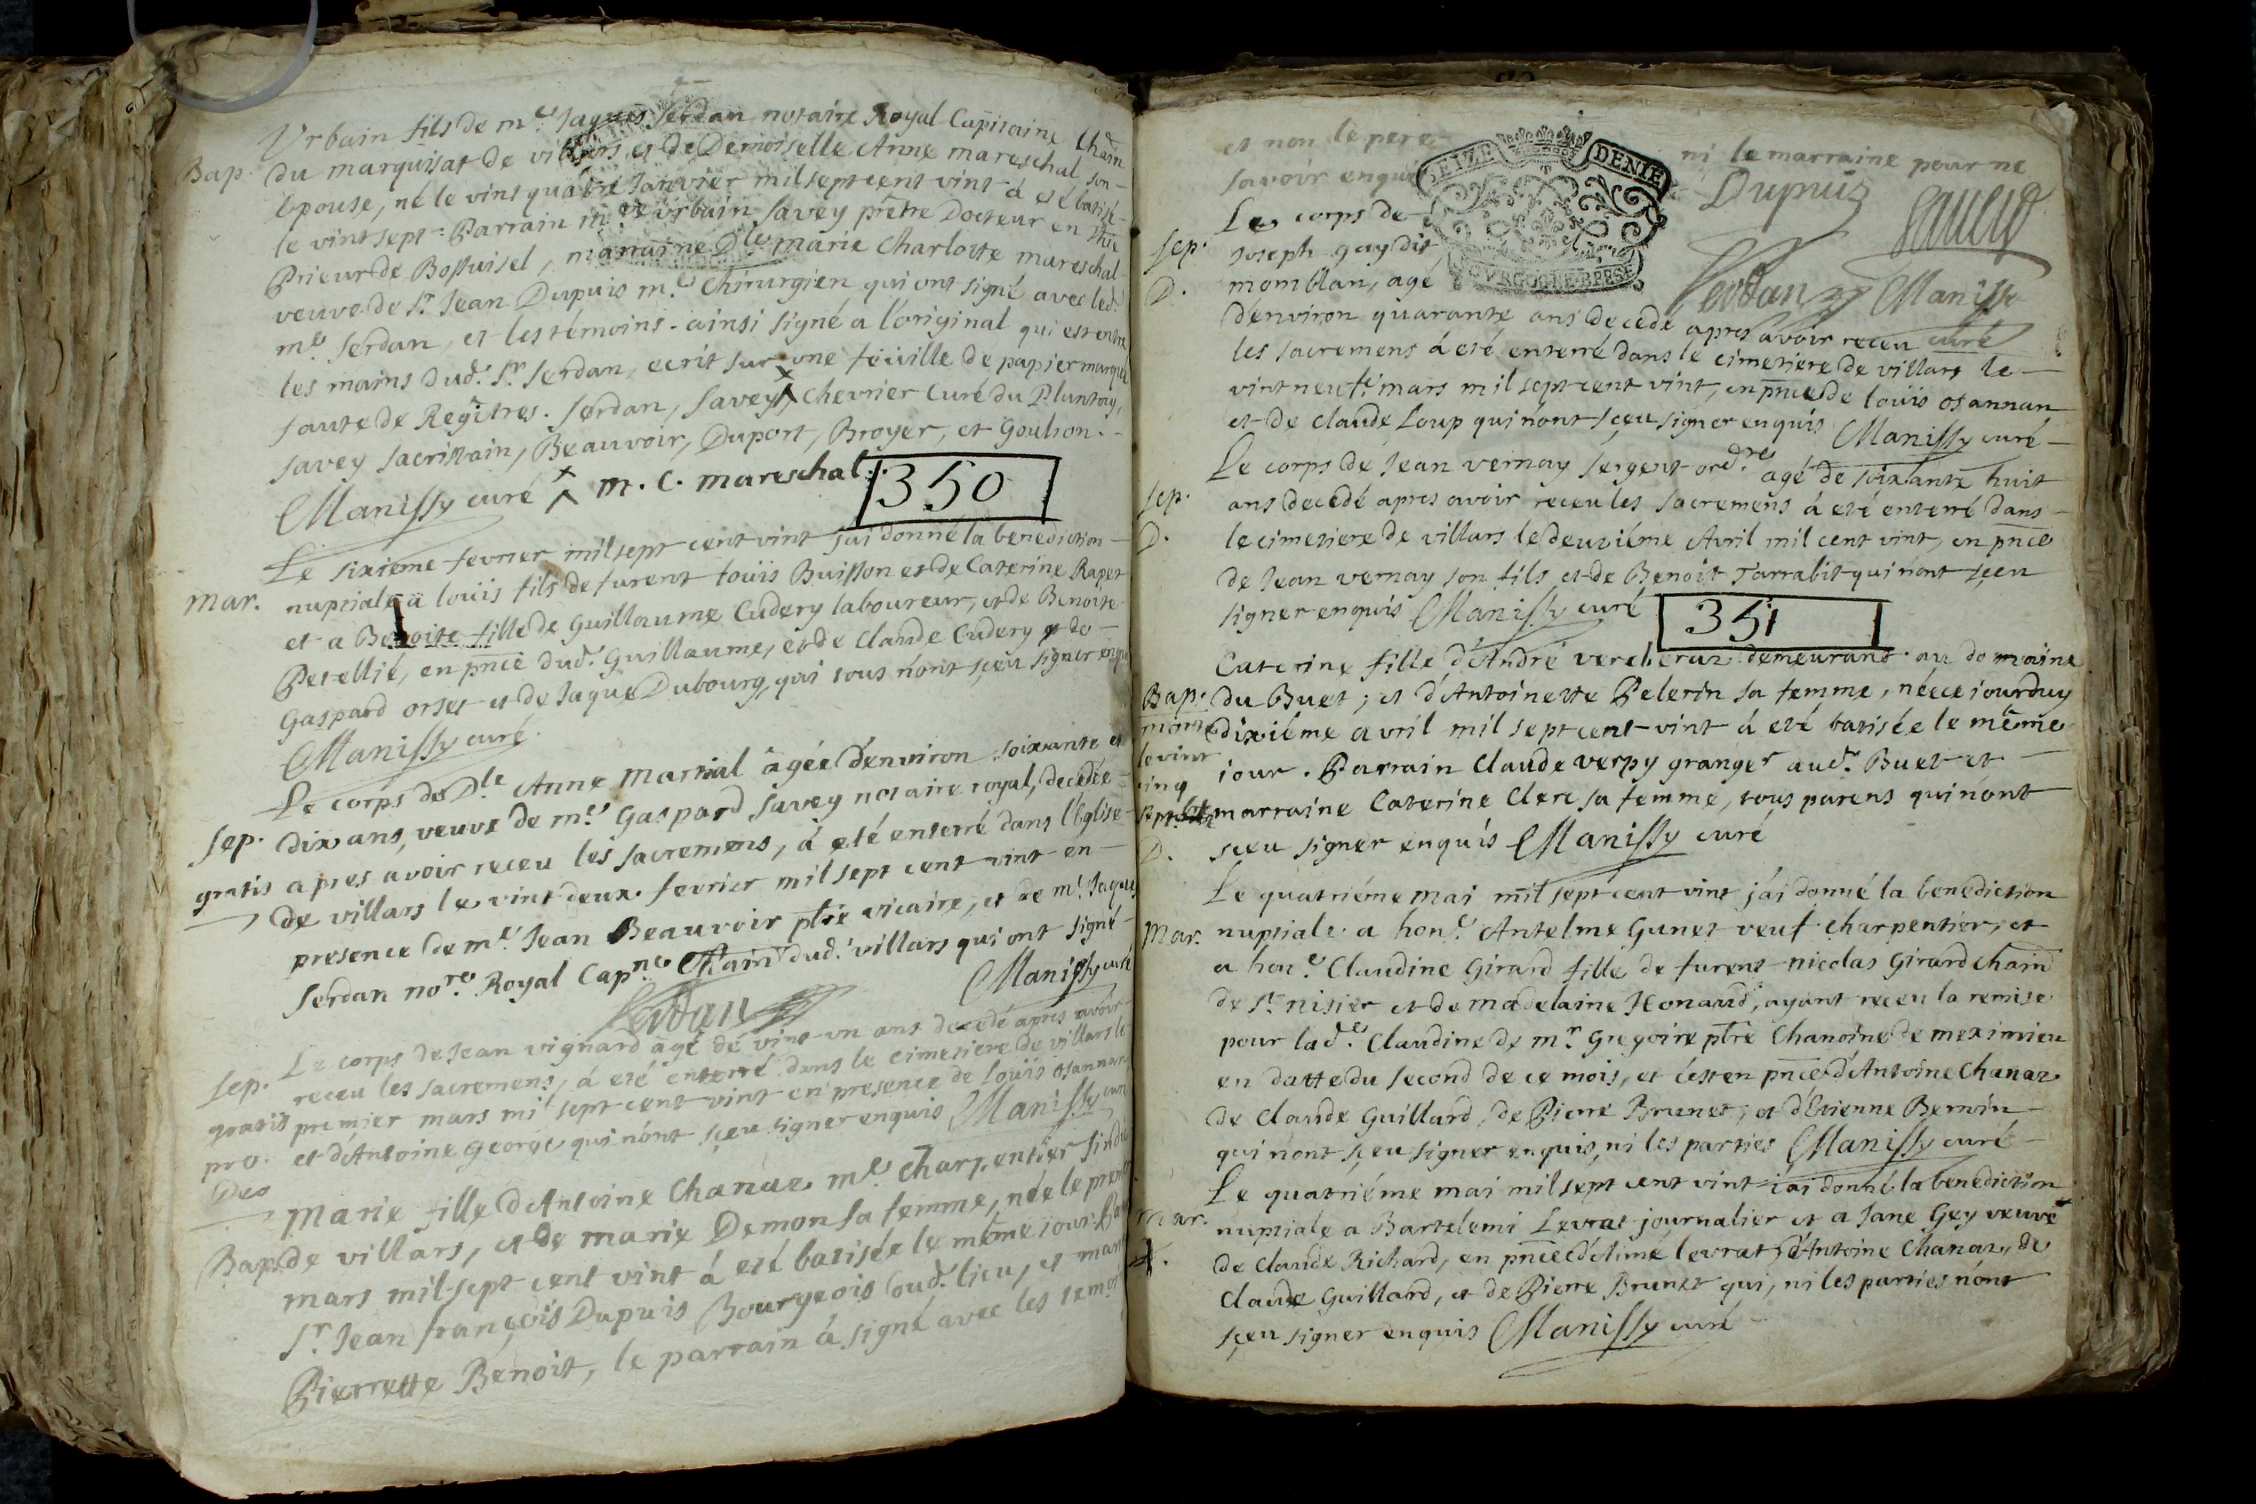 Urbain fils de m.e Jaques Serdan notaire Royal Capitaine Châin
Bap. du marquisat de villars, et de Demoiselle Anne mareschal son
épouse, né le vint quatre Janvier mil sept cent vint á eté batisé
le vint sept. Parrain m.re Urbain Savey prêtre Docteur en
Prieur de Bossuisel, marraine D.le marie Charlotte mareschal
veuve de S.r Jean Dupuis m.e Chirurgien qui ont signé avec led.
m.e Serdan, et les témoins. ainsi signé a l'original qui est entre
les mains dud. S.r Serdan, ecrit sur une feüille de papier marqué
faute de Regîtres. Serdan, Savey, Chevrier Curé du Plantay,
Savey Sacristain, Beauvoir, Duport, Broyer, et Goulion.
Manissy curé m. C. mareschal.
350
Le sixieme fevrier mil sept cent vint j'ai donné la benediction
mar. nuptiale a loüis fils de furent loüis Buisson et de Caterine Rapet
et a Benoite fille de Guillaume Cudery laboureur, et de Benoite
Petellié, en pnce dud. Guillaume, et de Claude Cudery de
Gaspard orset et de Jaque Dubourg, qui tous n'ont sçeu signer enquis
Manissy curé
Le corps de D.le Anne Martial âgée d'environ soixante et
Sep. dix ans, veuve de m.e Gaspard Savey notaire royal, decedée
gratis apres avoir receu les sacremens, á eté enterré dans l'Eglise
de villars le vint deux fevrier mil sept cent vint en
presence de m.e Jean Beauvoir ptre vicaire, et de m.e Jaques
Serdan no.re Royal Cap.ne Châin dud. villars qui ont signé
Serdan Manissy curé
Le corps de Jean vignard âgé de vint un ans decedé apres avoir
Sep. receu les sacremens, á eté enterré dans le cimetiere de villars le
gratis premier mars mil sept cent vint en presence de Loüis osannan
pro. et d'Antoine George qui n'ont sçeu signer enquis Manissy curé
Deo
Marie fille d'Antoine Chanaz m.e charpentier
Bap. de villars, et de marie Demon sa femme, née le premier
mars mil sept cent vint á eté batisée le même jour.
S.r Jean françois Dupuis Bourgeois dud. lieu, et
Pierrette Benoit, le parrain á signé avec les tem.
et non le pere ni le marraine pour ne
savoir enquis Dupuis Savey
SEIZE DENIE
BOURGOGNE BRESSE
Le corps de
Sep. Joseph guy dit
D. momblan, agé Serdan Manissy
d'environ quarante ans decedé apres avoir receu curé
les sacremens á eté enterré dans le cimetiere de villars le
vint neuf.e mars mil sept cent vint, en pnce de loüis osannan
et de Claude Loup qui n'ont sçeu signer enquis Manissy curé
Le corps de Jean vernay sergent ord.re agé de soixante huit
Sep. ans decedé apres avoir receu les sacremens á eté enterré dans
D. le cimetiere de villars le deuxiéme Avril mil cent vint, en pnce
de Jean vernay son fils et de Benoit Tarrabit qui n'ont sçeu
signer enquis Manissy curé
351
Caterine fille d'André vercheraz demeurant au domaine
Bap. du Buet; et d'Antoinette Pelerin sa femme, née ce jourduy
morte dixiéme avril mil sept cent vint á eté batisée le même
le vint jour. Parrain Claude verpy granger aud. Buet et
cinq marraine Caterine Clerc sa femme, tous parens qui n'ont
D. sçeu signer enquis Manissy curé
Le quatriéme mai mil sept cent vint j'ai donné la benediction
Mar. nuptiale a hon.e Antelme Gunet veuf charpentier, et
a hon.e Claudine Girard fille de furent nicolas Girard châin
de S.t nisier et de madelaine Honard, ayant receu la remise
pour lad.e Claudine de m.r Gregoire ptre Chanoine de meximieu
en datte du second de ce mois, et c'est en pnce d'Antoine Chanaz
de Claude Guillard, de Pierre Brunet, et d'Etienne Bernin
qui n'ont sçeu signer enquis, ni les parties Manissy curé
Le quatriéme mai mil sept cent vint j'ai donné la benediction
mar. nuptiale a Bartelemi Levrat journalier et a Jane Gey veuve
de Claude Richard, en pnce levrat, d'Antoine Chanaz, de
Claude Guillard, et de Pierre Brunet qui, ni les parties n'ont
sçeu signer enquis Manissy curé